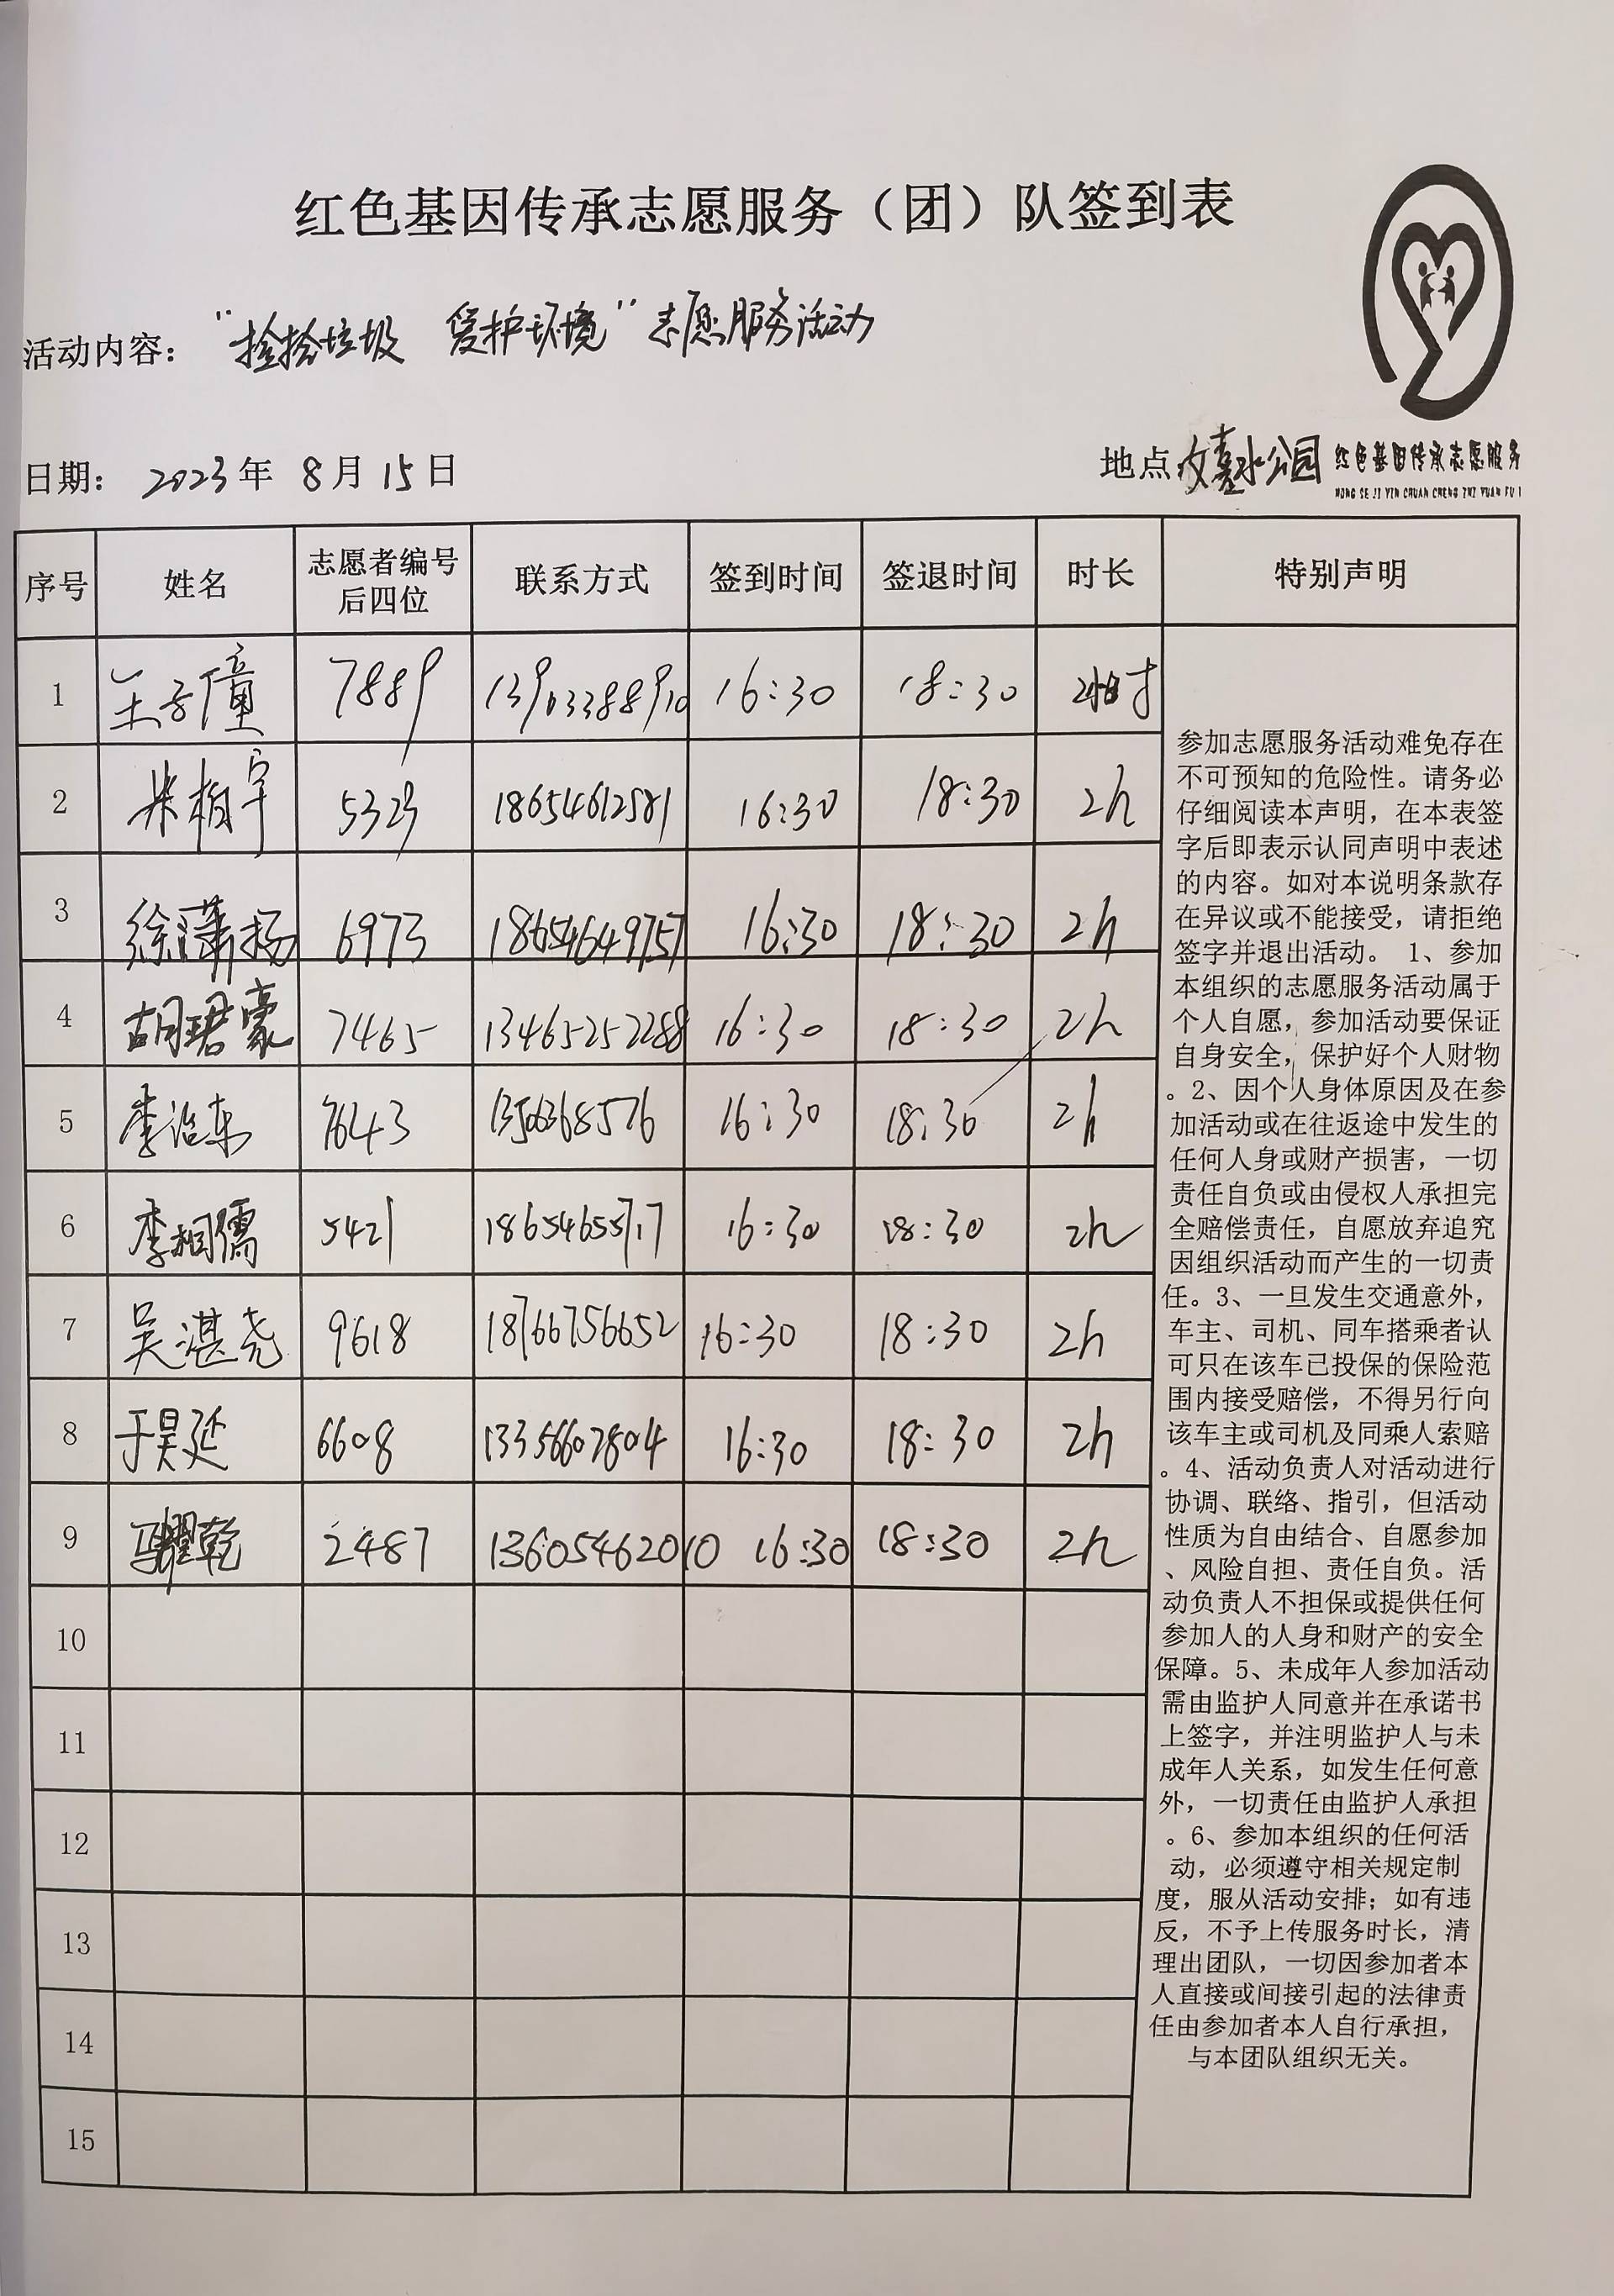 红色基因传承志愿服务（团）队签到表
活动内容： “捡拾垃圾 爱护环境”志愿服务活动
日期： 2023年 8月 15日
地点 水公园
红色基因传承志愿服务
HONG SE JI YIN CHUAN CHENG ZHI YUAN FU
序号 姓名 志愿者编号后四位 联系方式 签到时间 签退时间 时长 特别声明
1 王子僮 7889 13963388910 16:30 18:30
2 5323 18654612581 16:30 18:30 2h
3 徐潇扬 6973 18654649757 16:30 18:30 2h
4 胡珺豪 7465 13465252288 16:30 18:30 2h
5 7643 16:30 18:30 2h
6 李桐儒 5421 16:30 18:30 2h
7 吴湛尧 9618 18766756652 16:30 18:30 2h
8 于昊延 6608 13356607804 16:30 18:30 2h
9 马耀乾 2487 13605462010 16:30 18:30 2h
10
11
12
13
14
15
参加志愿服务活动难免存在
不可预知的危险性。请务必
仔细阅读本声明，在本表签
字后即表示认同声明中表述
的内容。如对本说明条款存
在异议或不能接受，请拒绝
签字并退出活动。 1、参加
本组织的志愿服务活动属于
个人自愿，参加活动要保证
自身安全，保护好个人财物
。2、因个人身体原因及在参
加活动或在往返途中发生的
任何人身或财产损害，一切
责任自负或由侵权人承担完
全赔偿责任，自愿放弃追究
因组织活动而产生的一切责
任。3、一旦发生交通意外，
车主、司机、同车搭乘者认
可只在该车已投保的保险范
围内接受赔偿，不得另行向
该车主或司机及同乘人索赔
。4、活动负责人对活动进行
协调、联络、指引，但活动
性质为自由结合、自愿参加
、风险自担、责任自负。活
动负责人不担保或提供任何
参加人的人身和财产的安全
保障。5、未成年人参加活动
需由监护人同意并在承诺书
上签字，并注明监护人与未
成年人关系，如发生任何意
外，一切责任由监护人承担
。6、参加本组织的任何活
动，必须遵守相关规定制
度，服从活动安排；如有违
反，不予上传服务时长，清
理出团队，一切因参加者本
人直接或间接引起的法律责
任由参加者本人自行承担，
与本团队组织无关。